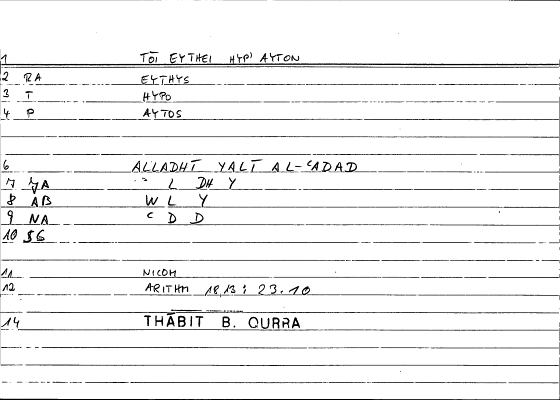 1 TŌI EYTHEI HYP' AYTON
2 RA EYTHYS
3 T HYPO
4 P AYTOS
6 ALLADHĪ YALĪ AL-ʿADAD
7 JA L DH Y
8 AB W L Y
9 NA ʿ D D
10 SG
11 NICOM
12 ARITHM 18,13 : 23.10
14 THĀBIT B. QURRA